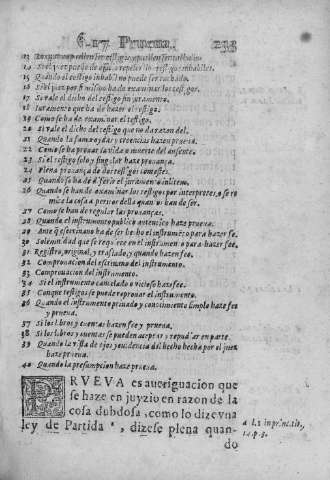 §.17 Prueua. 233
15 Quando el testigo inhabil no puede ser tachado.
16 Si el juez por si mismo ha de examinar los testigos.
17 Si vale el dicho del testigo sin juramento.
18 Juramento que ha de hazer el testigo.
19 Como se ha de examinar el testigo.
20 Si vale el dicho del testigo que no da razon del.
21 Quando la fama, oydas y creencias hazen prueua.
22 Como se ha prouar la vida o muerte del ausente.
23 Si el testigo solo y singular haze prouança.
24 Plena prouança de dos testigos contestes.
25 Quando se ha de diferir el juramento inlitem.
26 Quando se han de examinar los testigos por interpretes, o se remite la cosa a personas della quando han de ser.
27 Como se han de regular las prouanças.
28 Quando el instrumento publico autentico haze prueua.
29 Ante q̃ escriuano ha de ser hecho el instrumẽto para hazer fe.
30 Solemnidad que se requiere en el instrumẽto para hazer fee.
31 Registro, original, y traslado, y quando hazen fee.
32 Comprouacion del escriuano del instrumento.
33 Comprouacion del instrumento.
34 Si el instrumento cancelado o viciose haze fee.
35 Con que testigos se puede reprouar el instrumento.
36 Quando el instrumento priuado y conocimiento simple haze fee
y prueua.
37 Si los libros y cuentas hazen fee y prueua.
38 Si los libros y cuentas se pueden aceptar y repudiar en parte.
39 Quando la vista de ojos y euidencia del hecho hecha por el juez
haze prueua.
40 Quando la presumpcion haze prueua.
PRVEVA es aueriguacion que
se haze en juyzio en razon de la
cosa dubdosa, como lo dize vna
ley de Partida ª, dizese plena quan-
a l.1 in princ. tit.
14. p. 3.
do